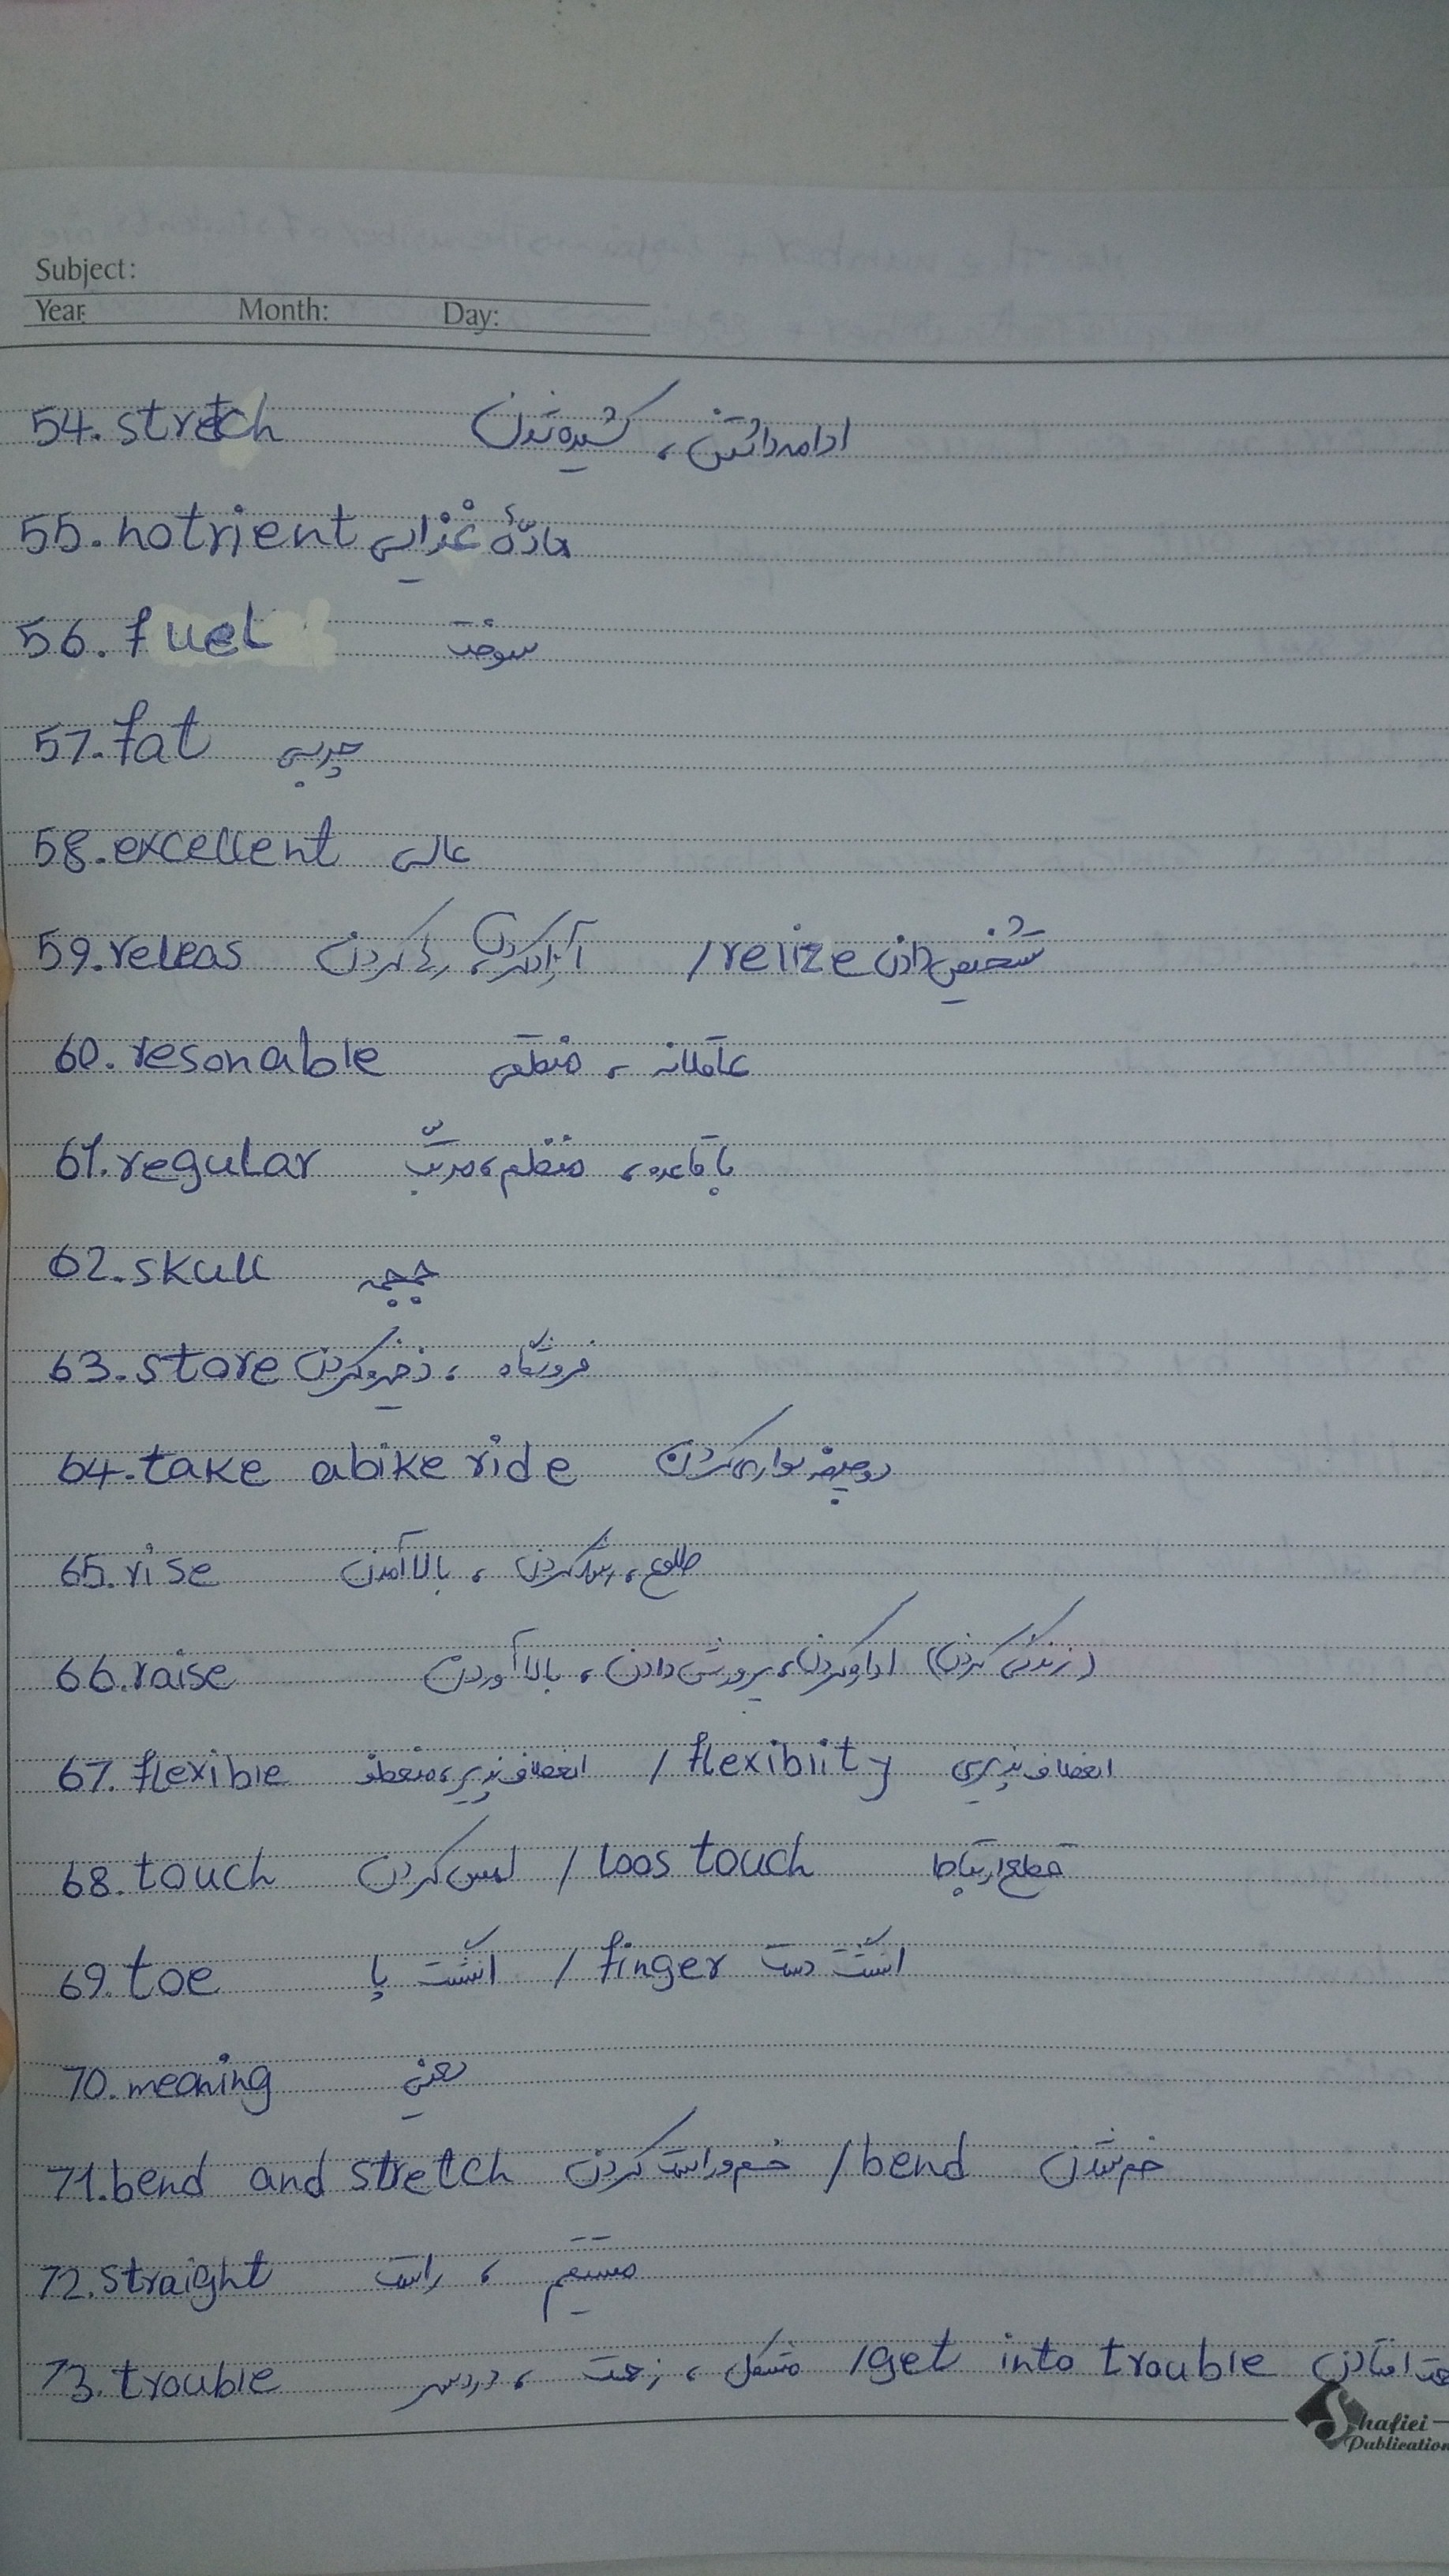 Subject:
Year: Month: Day:
54. stretch ادامه داشتن، کشیده شدن
55. notrient مادّهٔ غذایی
56. fuel سوخت
57. fat چربی
58. excellent عالی
59. releas آزاد کردن، رها کردن / relize تشخیص دادن
60. resonable عاقلانه، منطقی
61. regular با قاعده، منظم، مرتّب
62. skull جمجمه
63. store فروشگاه، ذخیره کردن
64. take a bike ride دوچرخه سواری کردن
65. rise طلوع، رشد کردن، بالا آمدن
66. raise (زندگی کردن) اداره کردن، پرورش دادن، بالا آوردن
67. flexible انعطاف پذیر، منعطف / flexibiity انعطاف پذیری
68. touch لمس کردن / loos touch قطع ارتباط
69. toe انگشت پا / finger انگشت دست
70. meaning معنی
71. bend and stretch خم و راست کردن / bend خم شدن
72. straight مستقیم، راست
73. trouble مشکل، زحمت، دردسر / get into trouble افتادن
Shafiei Publication